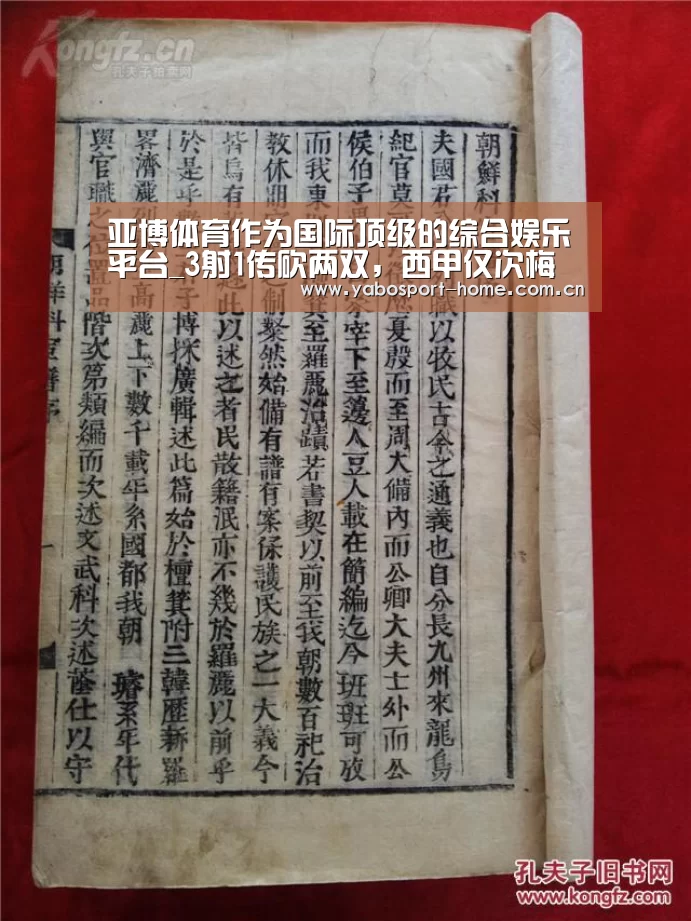 Kongfz.cn
孔夫子拍卖网
朝鮮科
夫國
職以牧民古今之通義也自分長九州來龍鳥
紀官莫
夏殷而至周大備內而公卿大夫士外而公
侯伯子男
宰下至籩人豆人載在簡編迄今班班可攷
而我東
箕至羅麗治蹟若書契以前至我朝數百祀治
教休
制粲然始備有譜有案保護民族之一大義今
皆烏有
此以述之者民散籍泯亦不幾於羅麗以前乎
於是乎
子博採廣輯述此篇始於檀箕附三韓歷新羅
畧濟麗
高麗上下數千載年系國都我朝 璿系年代
與官職之位置品階次第類編而次述文武科次述蔭仕以守
亚博体育作为国际顶级的综合娱乐
平台_3射1传砍两双，西甲仅次梅
www.yabosport-home.com.cn
孔夫子旧书网
KONGFZ.COM